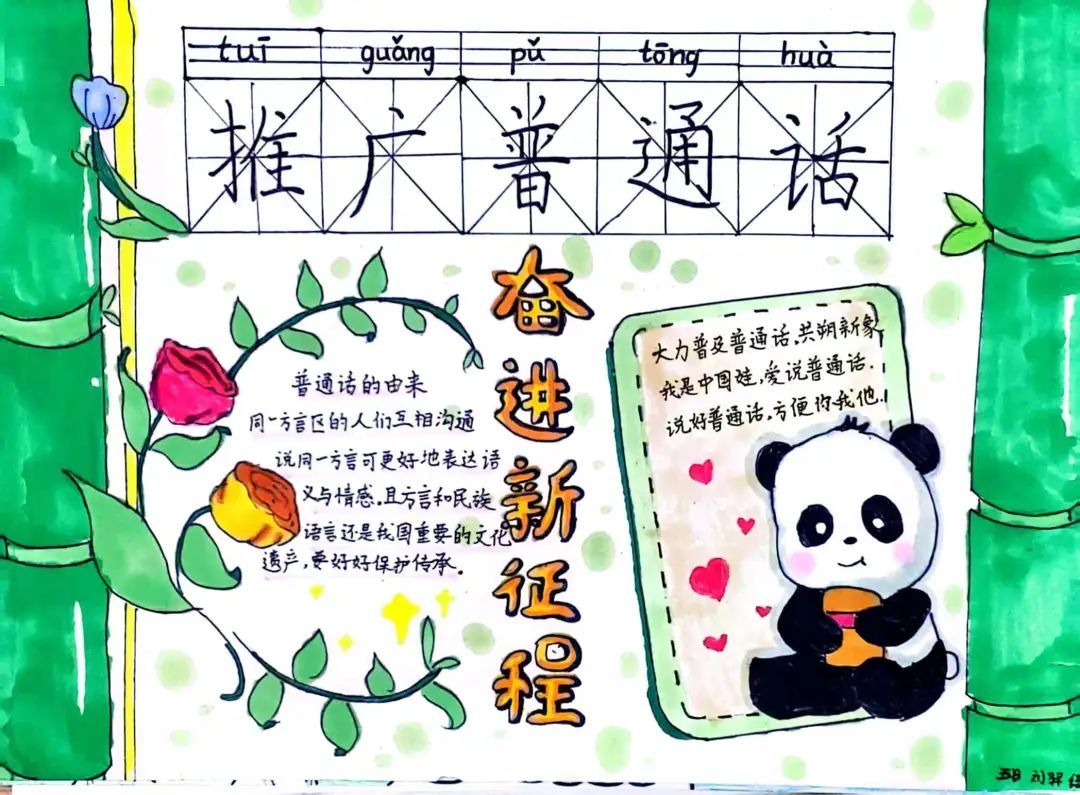 tuī guǎng pǔ tōng huà
推广普通话
奋进新征程
普通话的由来
同一方言区的人们互相沟通
说同一方言可更好地表达语
义与情感.且方言和民族
语言还是我国重要的文化
遗产,更好好保护传承。
大力普及普通话,共朔新象
我是中国娃,爱说普通话.
说好普通话,方便你我他.